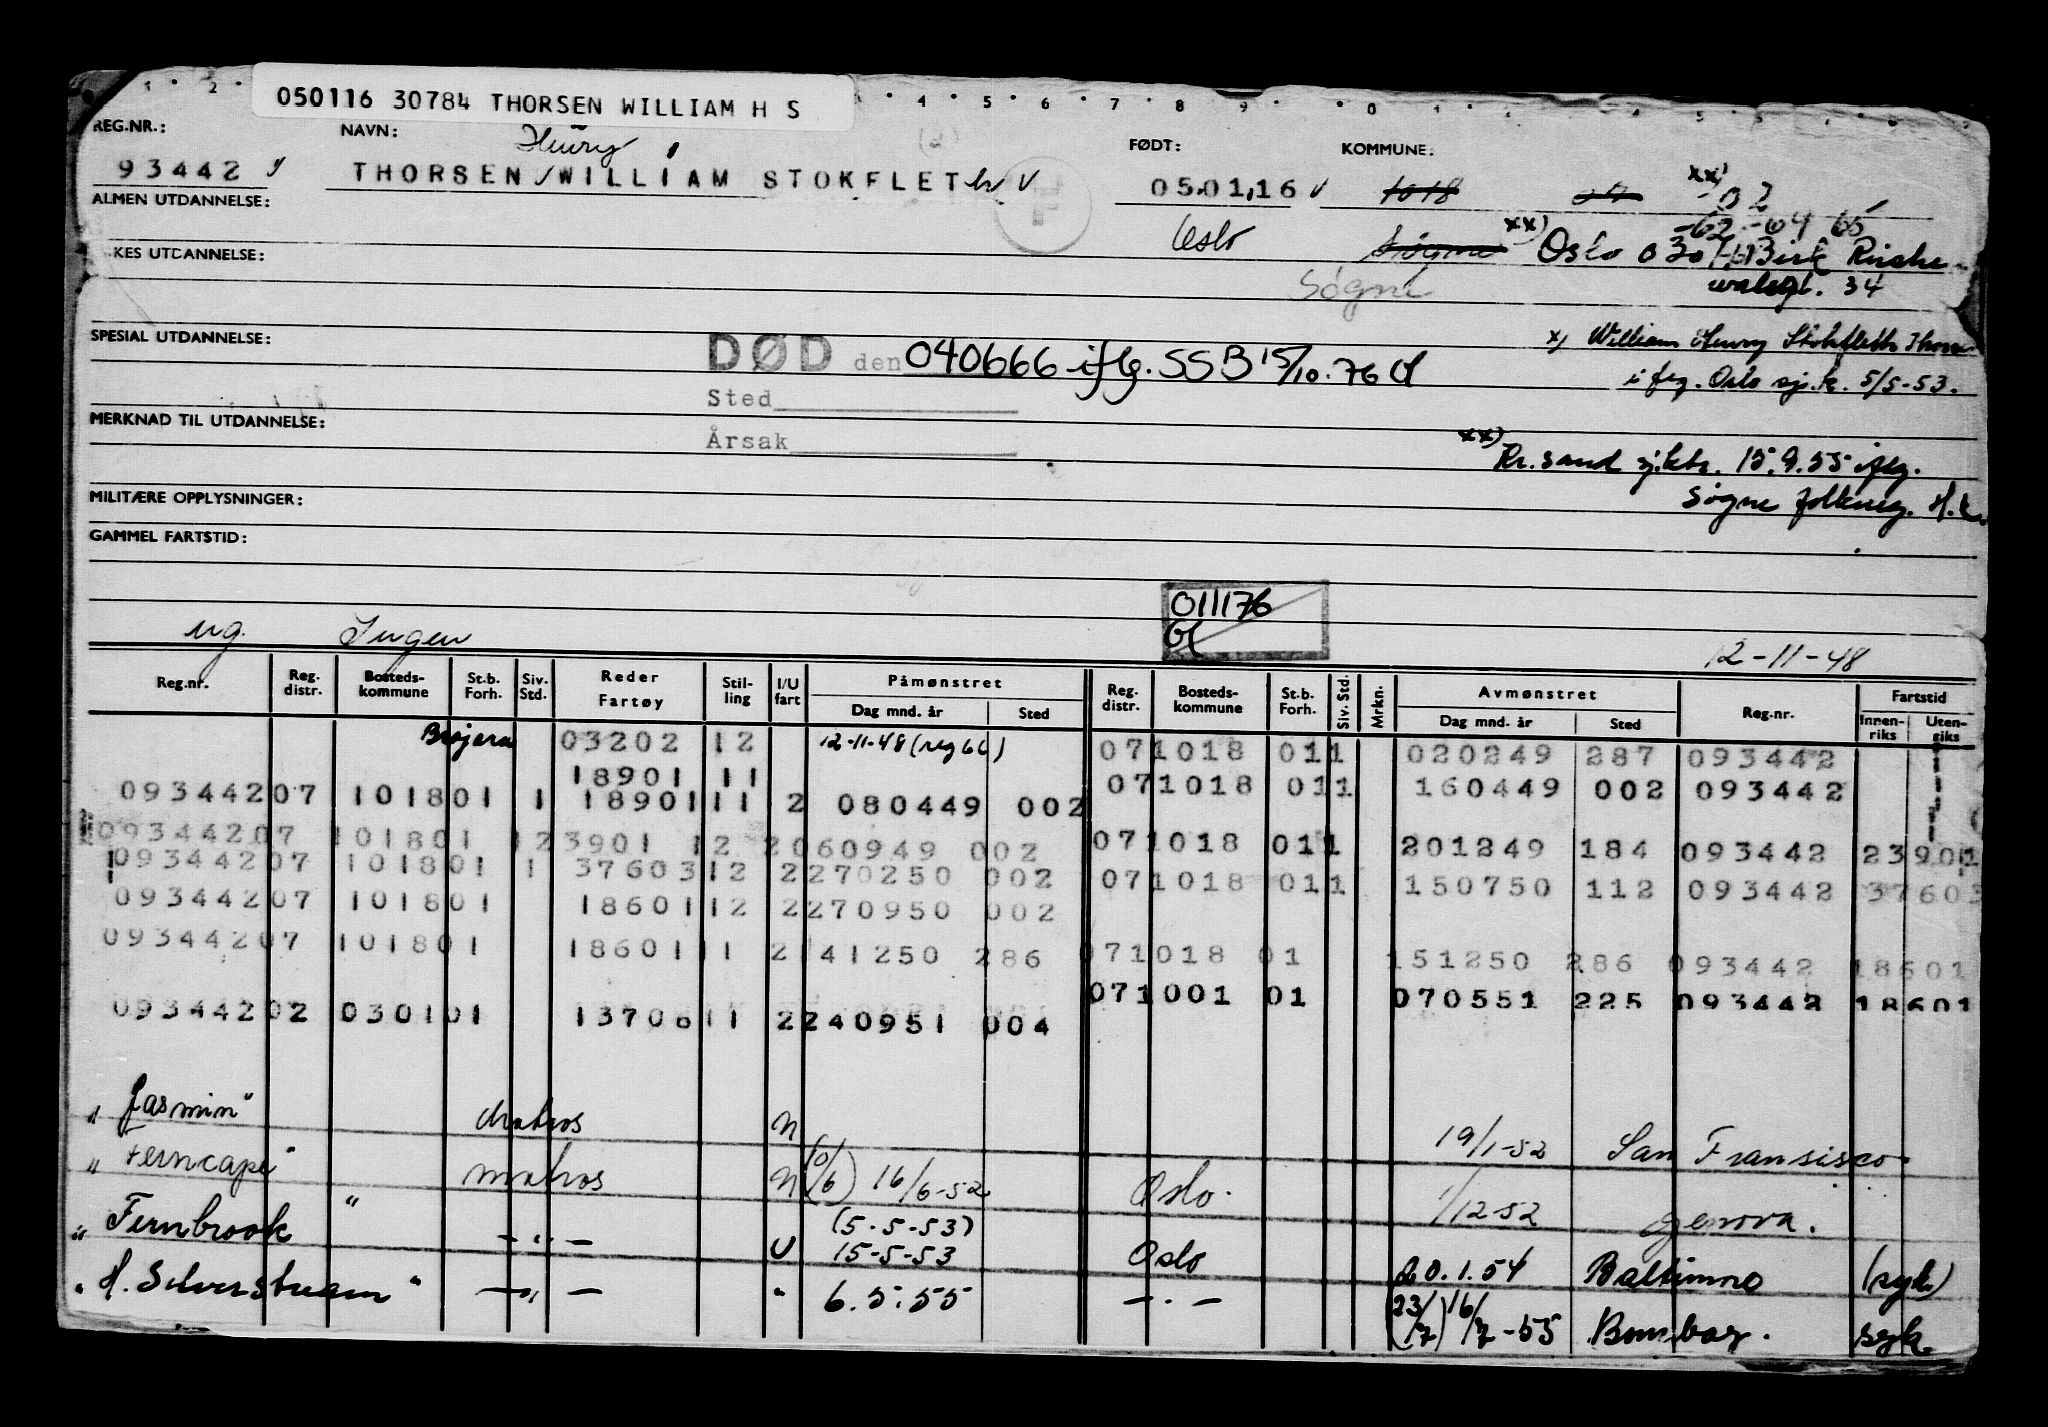 050116 30784 THORSEN WILLIAM H S
REG.NR.: NAVN: FØDT: KOMMUNE:
Henry
93442 THORSEN WILLIAM STOKFLETh 05.01.16 1018 -02
-62 -04 65
ALMEN UTDANNELSE:
Oslo Søgne xx) Oslo 0301
Søgne 34
KES UTDANNELSE:
SPESIAL UTDANNELSE:
x) William Henry Stokfleth Thorsen
DØD den 040666 iflg. SSB 15/10.76
iflg. Oslo sj.k. 5/5-53.
Sted
MERKNAD TIL UTDANNELSE:
Årsak
xx) Kr.sand sj.ktr. 15.9.55 iflg.
MILITÆRE OPPLYSNINGER:
Søgne folkereg.
GAMMEL FARTSTID:
011176
ug. Ingen 12-11-48
Reg.nr. Reg. distr. Bosteds-kommune St.b. Forh. Siv. Std. Reder Fartøy Stil-ling I/U fart Påmønstret Dag mnd. år Sted Reg. distr. Bosteds-kommune St.b. Forh. Siv. Std. Mrkn. Avmønstret Dag mnd. år Sted Reg.nr. Fartstid Innen-riks Uten-riks
03202 12 12-11-48 071018 011 020249 287 093442
18901 11 071018 011 160449 002 093442
09344207 101801 1 18901 11 2 080449 002
09344207 101801 1 23901 12 2 060949 002 071018 011 201249 184 093442 23901
09344207 101801 1 37603 12 2 270250 002 071018 011 150750 112 093442 37603
09344207 101801 18601 12 2 270950 002
09344207 101801 18601 11 2 141250 286 071018 01 151250 286 093442 18601
071001 01 070551 225 093442 18601
09344202 030101 13708 11 2 240951 004
"Jasmin" Matros 19/1-52 San Fransisco
"Ferncape" matros (10/6) 16/6-52 Oslo. 1/12-52 Genova.
"Fernbrook" - " - U (5.5-53) 15-5-53 Oslo 20.1.54 Baltimore (syk)
"H. Silverstream" - " - " 6.5.55 - . - (23/7) 16/7-55 Bombay. syk.